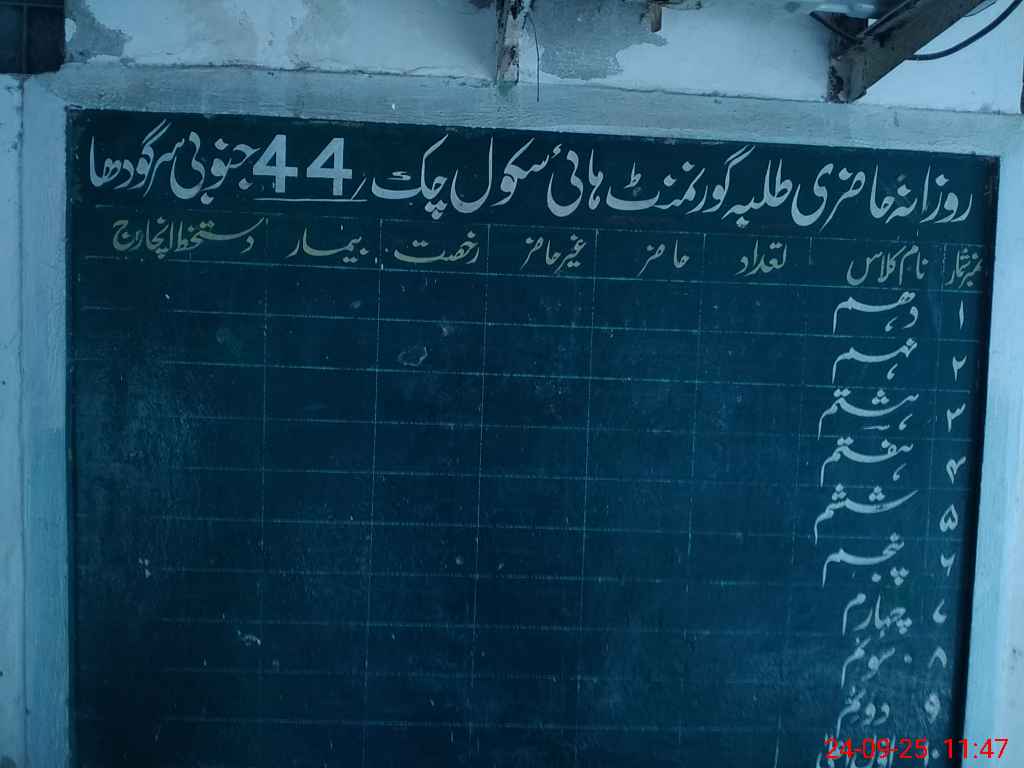 روزانہ حاضری طلبہ گورنمنٹ ہائی سکول چک 44 جنوبی سرگودھا
نمبر شمار نام کلاس تعداد حاضر غیر حاضر رخصت بیمار دستخط انچارج
۱ دہم
۲ نہم
۳ ہشتم
۴ ہفتم
۵ ششم
۶ پنجم
۷ چہارم
۸ سوئم
۹ دوئم
24-09-25 11:47